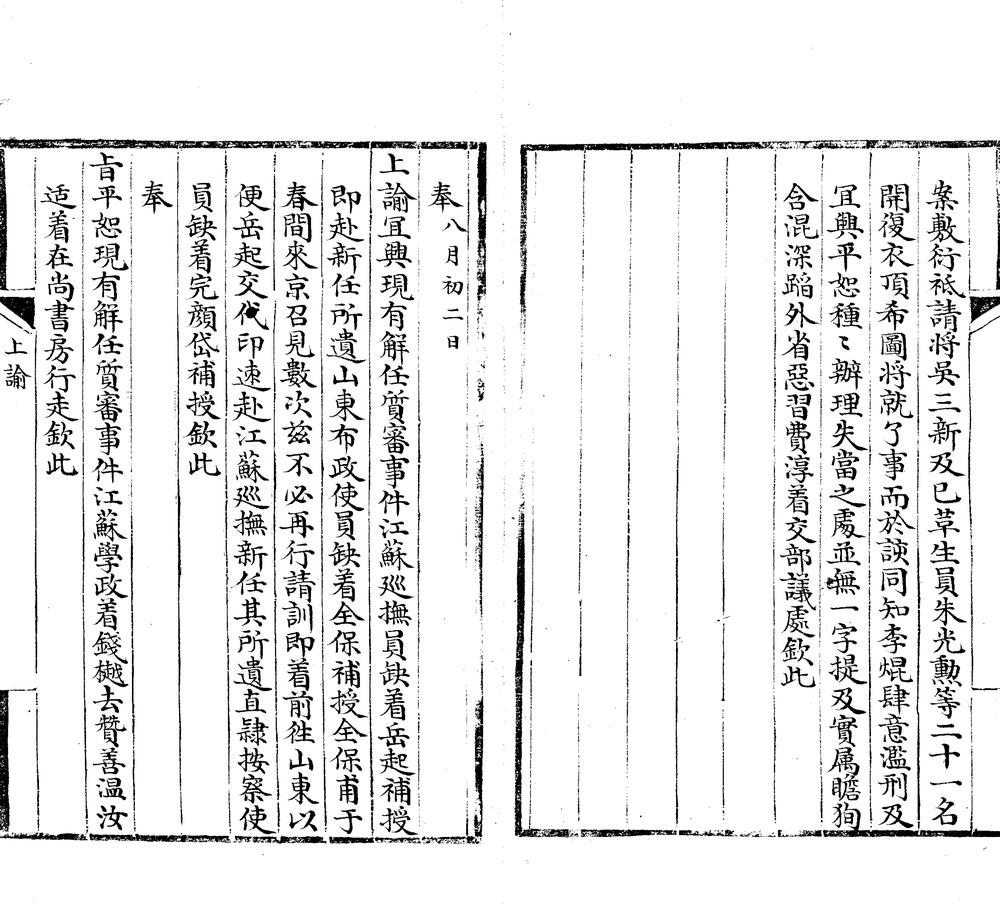 案敷衍祗請将吳三新及已革生員朱光勲等二十一名
開復衣頂希圖將就了事而於諛同知李焜肆意濫刑及
冝興平恕種〻辦理失當之處並無一字提及實属瞻狥
含混深蹈外省惡習費淳着交部議處欽此
奉八月初二日
上諭冝興現有解任質審事件江蘇廵撫員缺着岳起補授
即赴新任所遺山東布政使員缺着全保補授全保甫于
春間來京召見數次兹不必再行請訓即着前徃山東以
便岳起交代印速赴江蘇廵撫新任其所遺直隷按察使
員缺着完顔岱補授欽此
奉
㫖平恕現有解任質審事件江蘇學政着錢樾去贊善温汝
适着在尚書房行走欽此
上諭